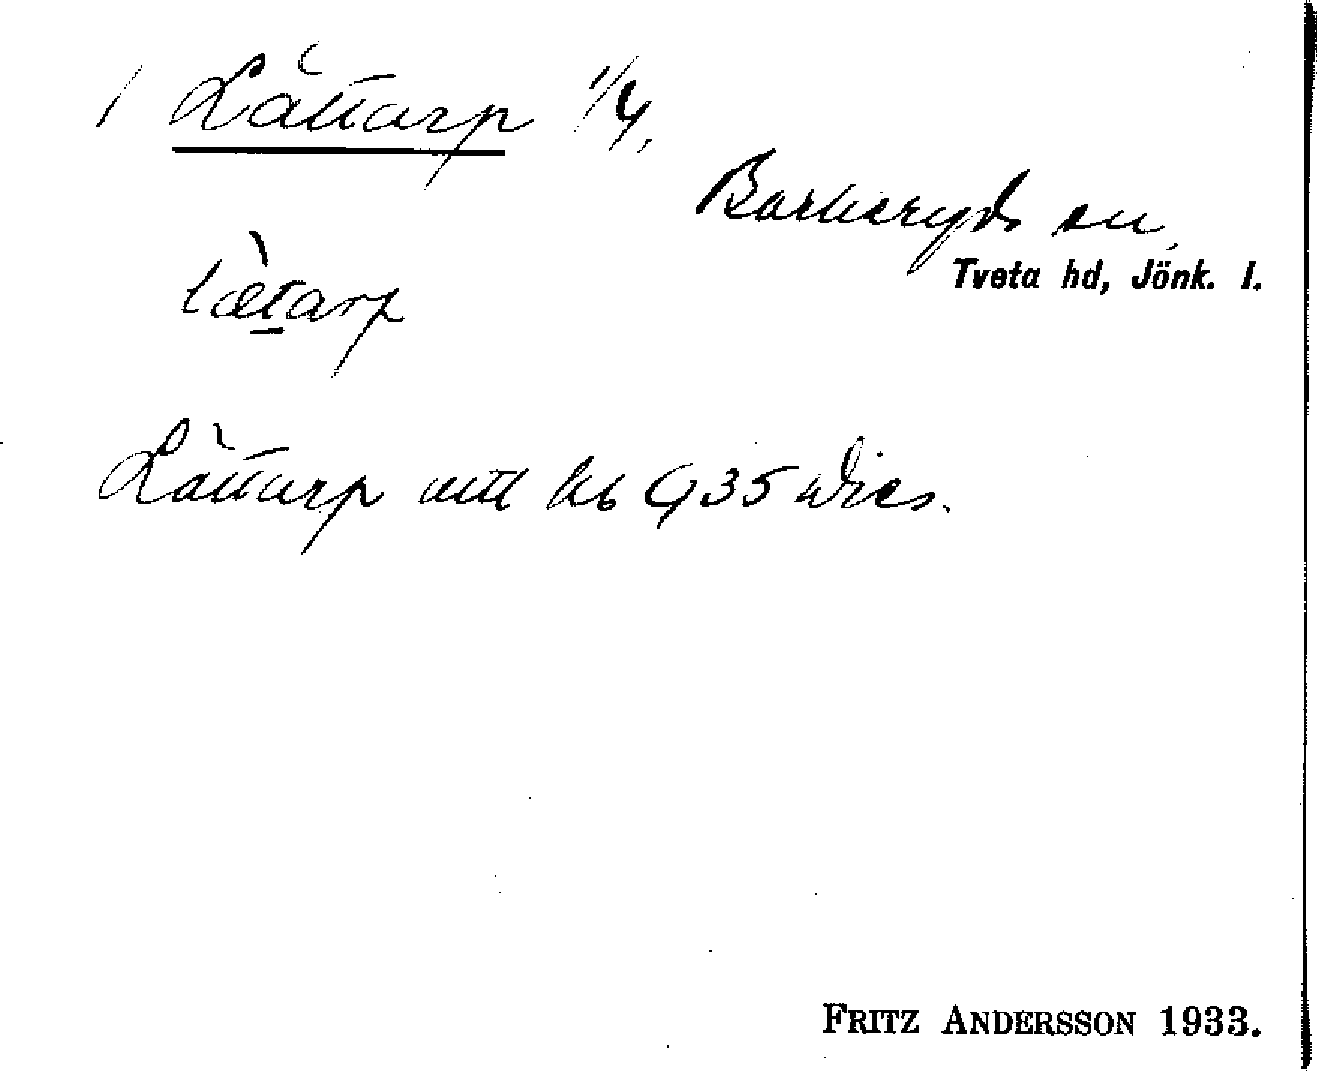 1 Lättarp 1/4,
Barkeryds sn,
Tveta hd, Jönk. l.
lætarp
Lättarp mtl kb G35 Wies.
FRITZ ANDERSSON 1933.